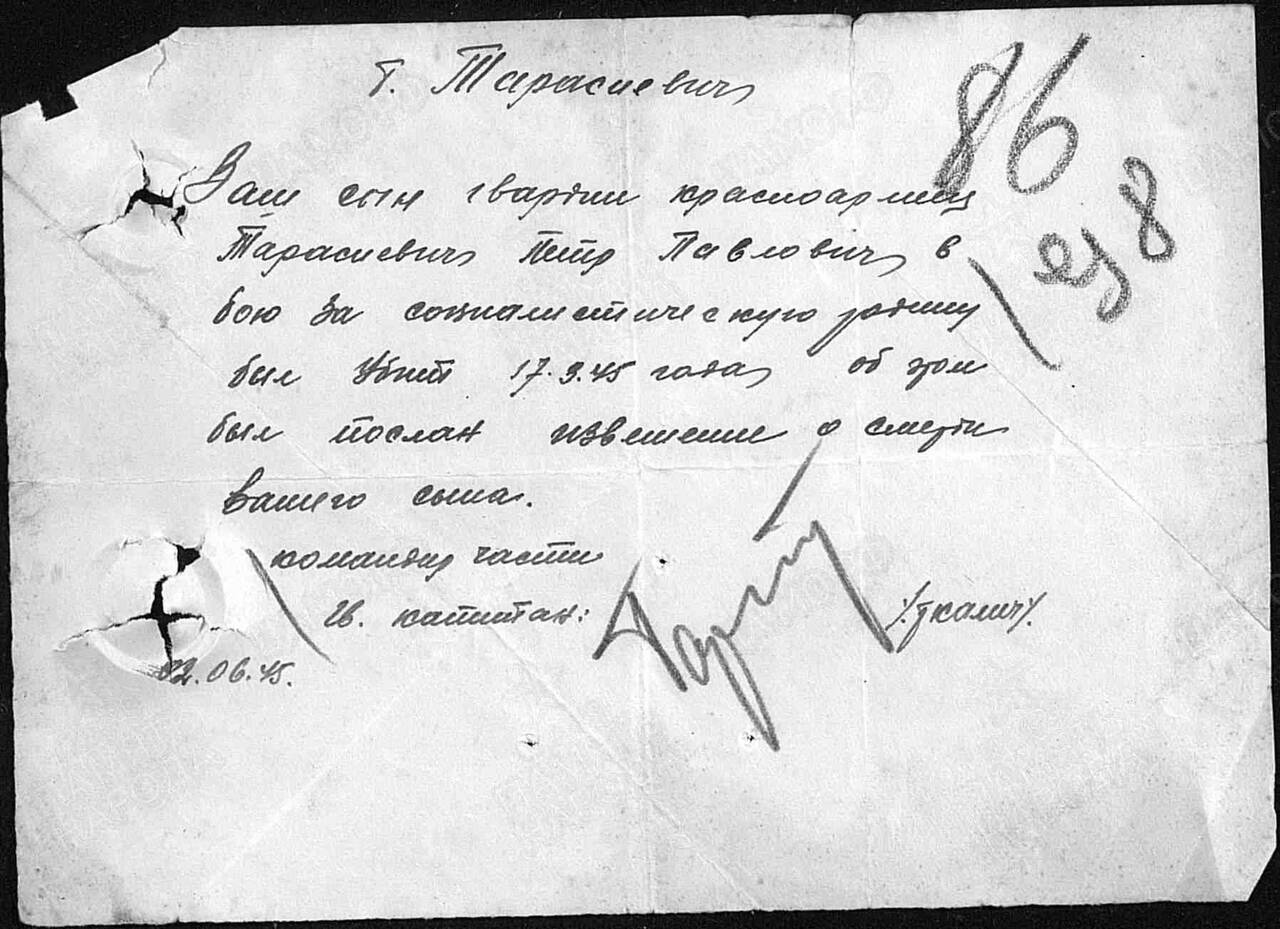 т. Тарасиевич
86
Ваш сын гвардии красноармеец
Тарасиевич Петр Павлович в
бою за социалистическую родину
был убит 17.3.45 года об этом
был послан извешение о смерти
вашего сына.
командир части
Гв. капитан:
02.06.45.